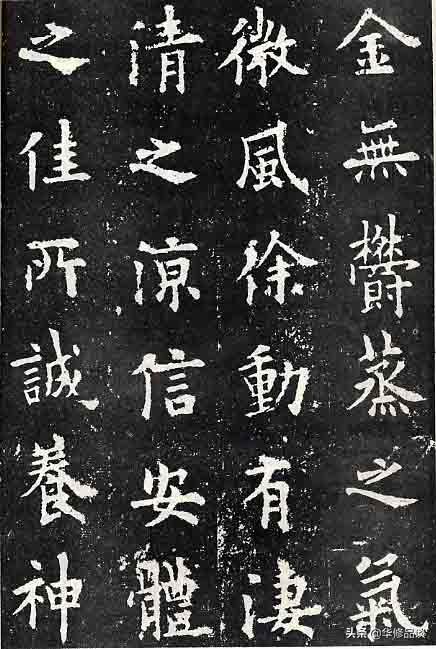 金無欝蒸之氣
微風徐動有淒
清之涼信安體
之佳所誠養神
头条 @华修品